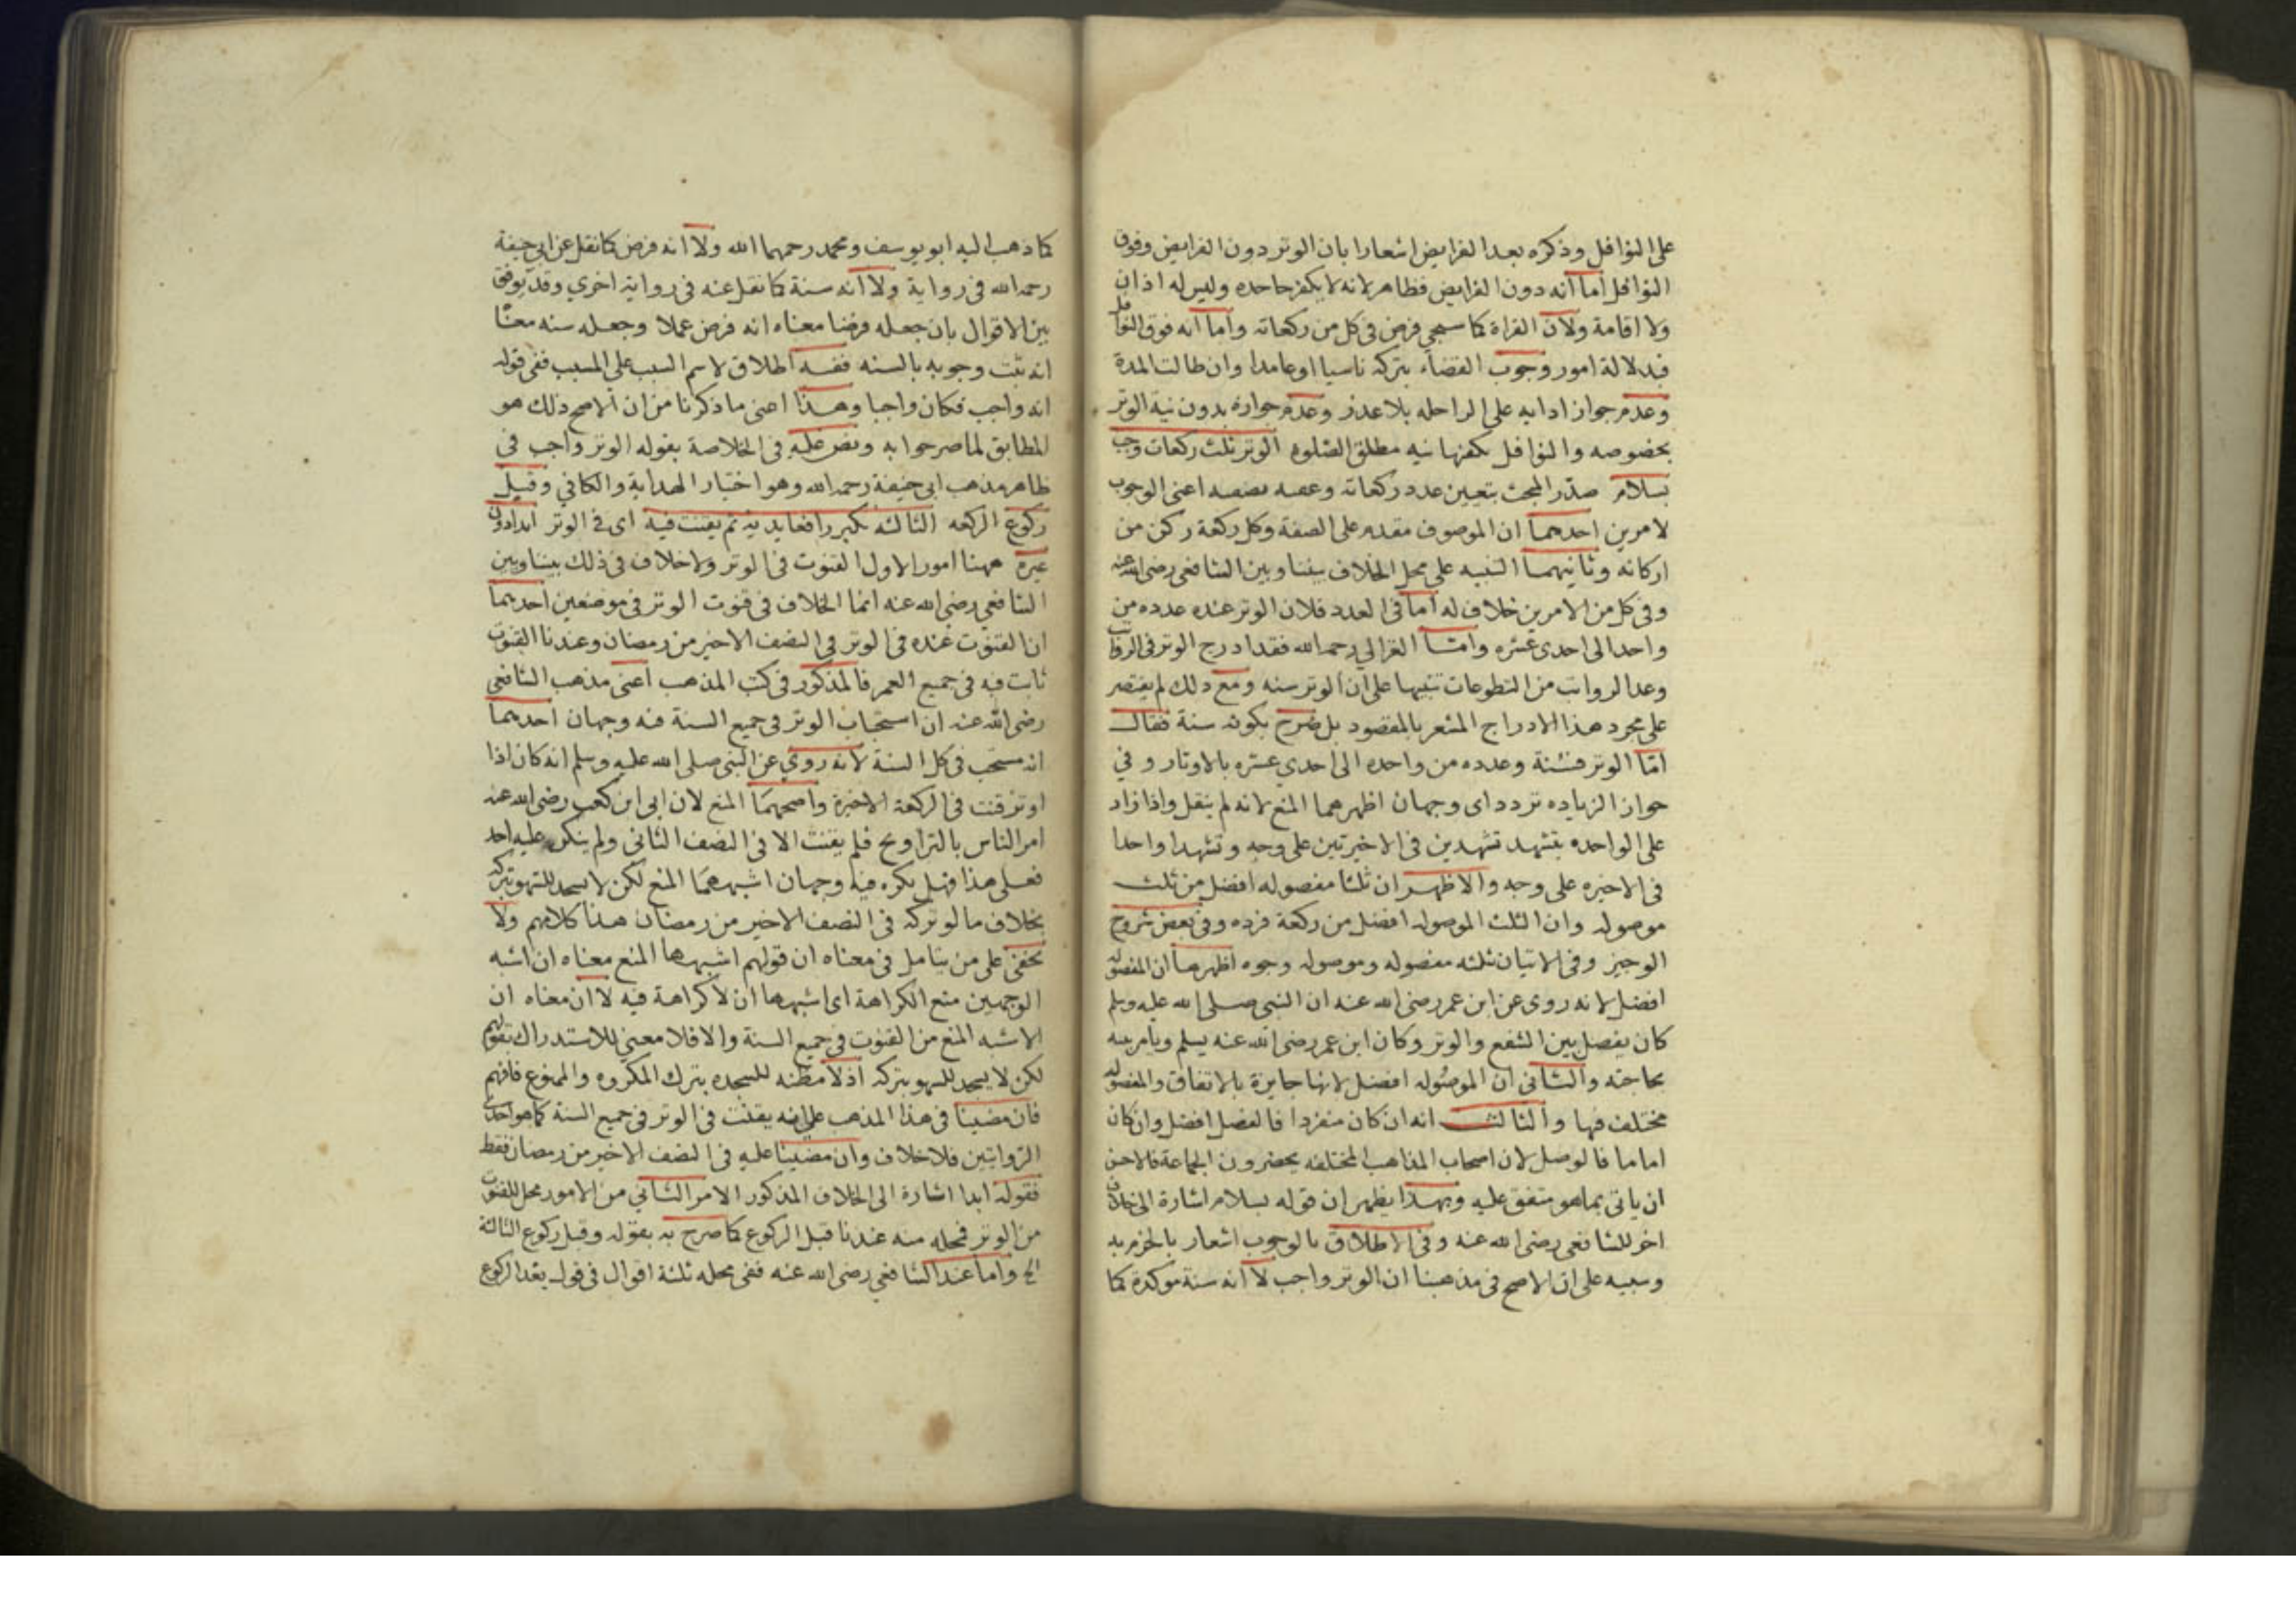 على النوافل وذكره بعد الفرايض اشعارا بان الوتر دون الفرايض وفوق
النوافل اما انه دون الفرايض فظاهر لانه لا يكفر جاحده وليس له اذان
ولا اقامة ولان القراة كما سيجي فرض في كل من ركعاته واما انه فوق النوافل
فبدلالة امور وجوب القضاء بتركه ناسيا او عامدا وان طالت المدة
وعدم جواز ادايه على الراحله بلا عذر وعدم جوازه بدون نية الوتر
بخصوصه والنوافل يكفيها نيه مطلق الصلوة الوتر ثلث ركعات وجب
بسلام صدّر المبحث بتعيين عدد ركعاته وعقبه بصفته اعنى الوجوب
لامرين احدهما ان الموصوف مقدم على الصفة وكل ركعة ركن من
اركانه وثانيهما التنبيه على محل الخلاف بيننا وبين الشافعى رضى الله عنه
وفى كل من الامرين خلاف له اما فى العدد فلان الوتر عنده عدده من
واحد الى احدى عشره وامّا الغزالي رحمه الله فقد ادرج الوتر فى الرواتب
وعد الرواتب من التطوعات تنبيها على ان الوتر سنه ومع ذلك لم يقتصر
على مجرد هذا الادراج المشعر بالمقصود بل صرح بكونه سنة فقال
امّا الوتر فسُنة وعدده من واحده الى احدي عشره بالاوتار وفي
جواز الزياده تردد اى وجهان اظهرهما المنع لانه لم ينقل واذا زاد
على الواحده يتشهد تشهدين فى الاخيرتين على وجه وتشهدا واحدا
فى الاخيره على وجه والاظهر ان ثلثا مفصوله افضل من ثلث
موصوله وان الثلث الموصوله افضل من ركعة فرده وفى بعض شروح
الوجيز وفى الاتيان ثلثه مفصوله وموصوله وجوه اظهرها ان المفصوله
افضل لانه روى عن ابن عمر رضى الله عنه ان النبى صلى الله عليه وسلم
كان يفصل بين الشفع والوتر وكان ابن عمر رضى الله عنه يسلم ويامر بينه
بحاجته والثانى ان الموصوله افضل لانها جايزة بالاتفاق والمفصوله
مختلف فيها والثالث انه ان كان منفردا فالفصل افضل وان كان
اماما فالوصل لان اصحاب المذاهب المختلفه يحضرون الجماعة فالاحق
ان ياتى بما هو متفق عليه وبهذا يظهر ان قوله بسلام اشارة الى خلاف
اخر للشافعى رضى الله عنه وفى الاطلاق بالوجوب اشعار بالجزم به
وتنبيه على ان الاصح فى مذهبنا ان الوتر واجب لا انه سنة موكدة كما
كما ذهب اليه ابو يوسف ومحمد رحمهما الله ولا انه فرض كما نقل عن ابى حنيفة
رحمه الله فى رواية ولا انه سنة كما نقل عنه فى رواية اخري وقد يوفق
بين الاقوال بان جعله فرضا معناه انه فرض عملا وجعله سنه معنا
انه ثبت وجوبه بالسنه ففيه اطلاق لاسم السبب على المسبب ففى قوله
انه واجب فكان واجبا وهذا اعنى ما ذكرنا من ان الاصح ذلك هو
المطابق لما صرحوا به ونص عليه فى الخلاصة بقوله الوتر واجب فى
ظاهر مذهب ابى حنيفة رحمه الله وهو اختيار الهداية والكافي وقبل
ركوع الركعه الثالثه يكبر رافعا يديه ثم يقنت فيه اى فى الوتر ابدا دون
غيره ههنا امور الاول القنوت فى الوتر ولا خلاف فى ذلك بيننا وبين
الشافعي رضى الله عنه انما الخلاف فى قنوت الوتر فى موضعين احدهما
ان القنوت عنده فى الوتر فى النصف الاخير من رمضان وعندنا القنوت
ثابت فيه فى جميع العمر فالمذكور فى كتب المذهب اعنى مذهب الشافعى
رضى الله عنه ان استحباب الوتر فى جميع السنة فيه وجهان احدهما
انه مستحب فى كل السنة لانه روي عن النبى صلى الله عليه وسلم انه كان اذا
اوتر قنت فى الركعة الاخيرة واصحهما المنع لان ابى ابن كعب رضى الله عنه
امر الناس بالتراويح فلم يقنت الا فى النصف الثانى ولم ينكر عليه احد
فعلى هذا فهل يكره فيه وجهان اشبههما المنع لكن لا يسجد للسهو بتركه
بخلاف ما لو تركه فى النصف الاخير من رمضان هذا كلامهم ولا
يخفى على من يتامل فى معناه ان قولهم اشبهها المنع معناه ان اشبه
الوجهين منع الكراهة اى اشبهها ان لا كراهة فيه لا ان معناه ان
الاشبه المنع من القنوت فى جميع السنة والا فلا معنى للاستدراك بقولهم
لكن لا يسجد للسهو بتركه اذ لا مظنه للسجده بترك المكروه والممنوع فافهم
فان مضينا فى هذا المذهب على انه يقنت فى الوتر فى جميع السنة كما هو احدى
الروايتين فلا خلاف وان مضينا عليه فى النصف الاخير من رمضان فقط
فقوله ابدا اشارة الى الخلاف المذكور الامر الثاني من الامور محل للقنوت
من الوتر فمحله منه عندنا قبل الركوع كما صرح به بقوله وقبل ركوع الثالثة
الخ واما عند الشافعي رضى الله عنه ففى محله ثلثة اقوال فى قول بعد الركوع